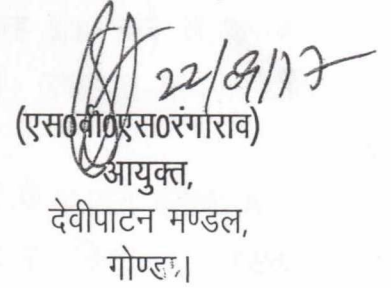 22/09/17
(एस0वी0एस0रंगाराव)
आयुक्त,
देवीपाटन मण्डल,
गोण्डा।